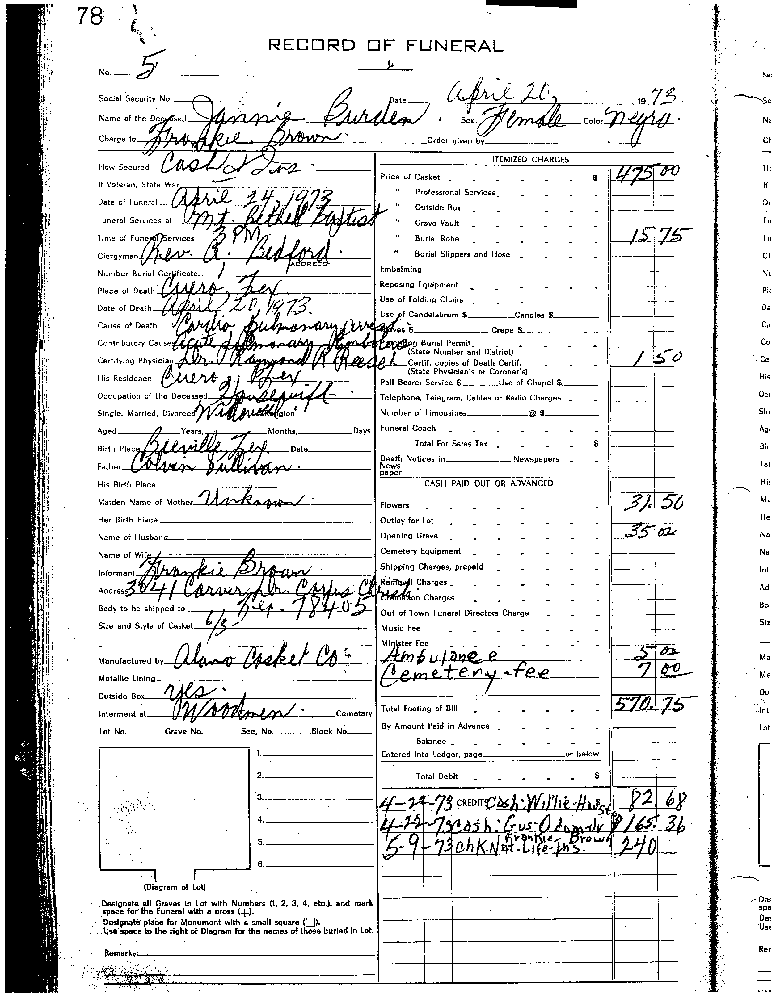 78
RECORD OF FUNERAL
No. 5
Social Security No. Date April 20, 1973
Name of the Deceased Jannie Burden Sex Female Color Negro
Charge to Frankie Brown Order given by
How Secured Cash & Ins.
If Veteran, State War
Date of Funeral April 24, 1973
Funeral Services at Mt. Bethel Baptist
Time of Funeral Services 3 PM
Clergyman Rev. A. Bedford ADDRESS
Number Burial Certificate
Place of Death Cuero, Tex
Date of Death April 20, 1973.
Cause of Death Cardio pulmonary arrest
Contributory Cause Acute pulmonary
Certifying Physician Dr. Raymond R Reese
His Residence Cuero, Tex.
Occupation of the Deceased Housewife
Single, Married, Divorced Widowed Religion
Aged Years, Months, Days
Birth Place Beeville, Tex Date
Father Colvin Sullivan.
His Birth Place
Maiden Name of Mother Unknown
Her Birth Place
Name of Husband
Name of Wife
Informant Frankie Brown
Address 3941 Carver Dr. Corpus Christi
Body to be shipped to Tex. 78405
Size and Style of Casket 6/3
Manufactured by Alamo Casket Co.
Metallic Lining
Outside Box yes.
Interment at Woodmen Cemetery
Lot No. Grave No. Sec. No. Block No.
1.
2.
3.
4.
5.
6.
(Diagram of Lot)
Designate all Graves in Lot with Numbers (1, 2, 3, 4, etc.), and mark
space for the Funeral with a cross (+).
Designate place for Monument with a small square (□).
Use space to the right of Diagram for the names of those buried in Lot.
Remarks:
ITEMIZED CHARGES
Price of Casket $ 475 00
" Professional Services
" Outside Box
" Grave Vault
" Burial Robe 15 75
" Burial Slippers and Hose
Embalming
Reposing Equipment
Use of Folding Chairs
Use of Candelabrum $ Candles $
Gloves $ Crape $
Burial Permit
(State Number and District)
Certif. copies of Death Certif. 1 50
(State Physician's or Coroner's)
Pall Bearer Service $ Use of Chapel $
Telephone, Telegram, Cables or Radio Charges
Number of Limousines @ $
Funeral Coach
Total For Sales Tax $
Death Notices in Newspapers
News
paper
CASH PAID OUT OR ADVANCED
Flowers 31.50
Outlay for Lot
Opening Grave 35 00
Cemetery Equipment
Shipping Charges, prepaid
Removal Charges
Cremation Charges
Out of Town Funeral Directors Charge
Music Fee
Minister Fee
Ambulance 5 00
Cemetery-fee 7 00
Total Footing of Bill 570.75
By Amount Paid in Advance
Balance
Entered into Ledger, page or below
Total Debit $
4-22-73 CREDITS Cash: Willie 82 68
4-22-73 Cash: Gus $165.36
Frankie Brown
5-9-73 chk Nat-Life-Ins. 240